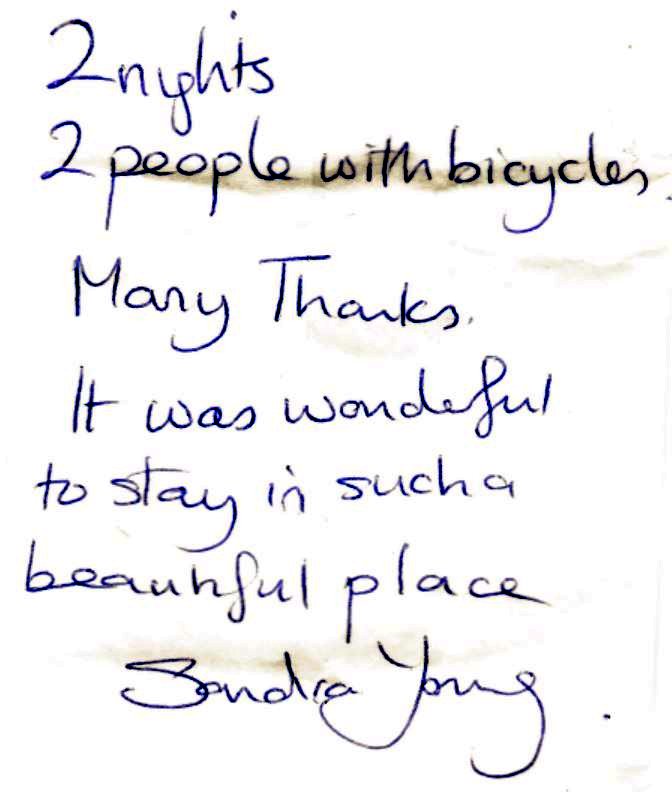 2 nights
2 people with bicycles.
Many Thanks.
It was wonderful
to stay in such a
beautiful place
Sandra Young.